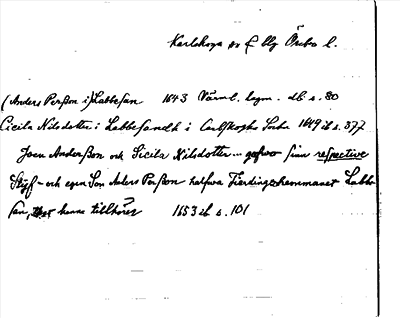 Karlskoga sn E blg Örebro l.
(Anders Perßon i) Labbesan 1643 Värml. legm. db s. 80
Cicila Nilsdotter i Labbesandh i Carlskoghe Sochn 1649 db s. 377
Joen Anderßon och Sicila Nilsdotter ... gofwo sinn respective
Styf- och egen Son Anders Perßon halfwa Fierdingshemmanet Labbe
san, henne tillhörer 1653 db s. 101